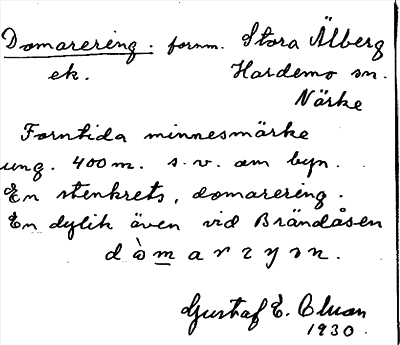 Domarering. fornm. Stora Älberg
ek. Hardemo sn.
Närke
Forntida minnesmärke
ung. 400 m. s.v. om byn.
En stenkrets, domarering.
En dylik även vid Brändåsen
Gustaf E.
1930.